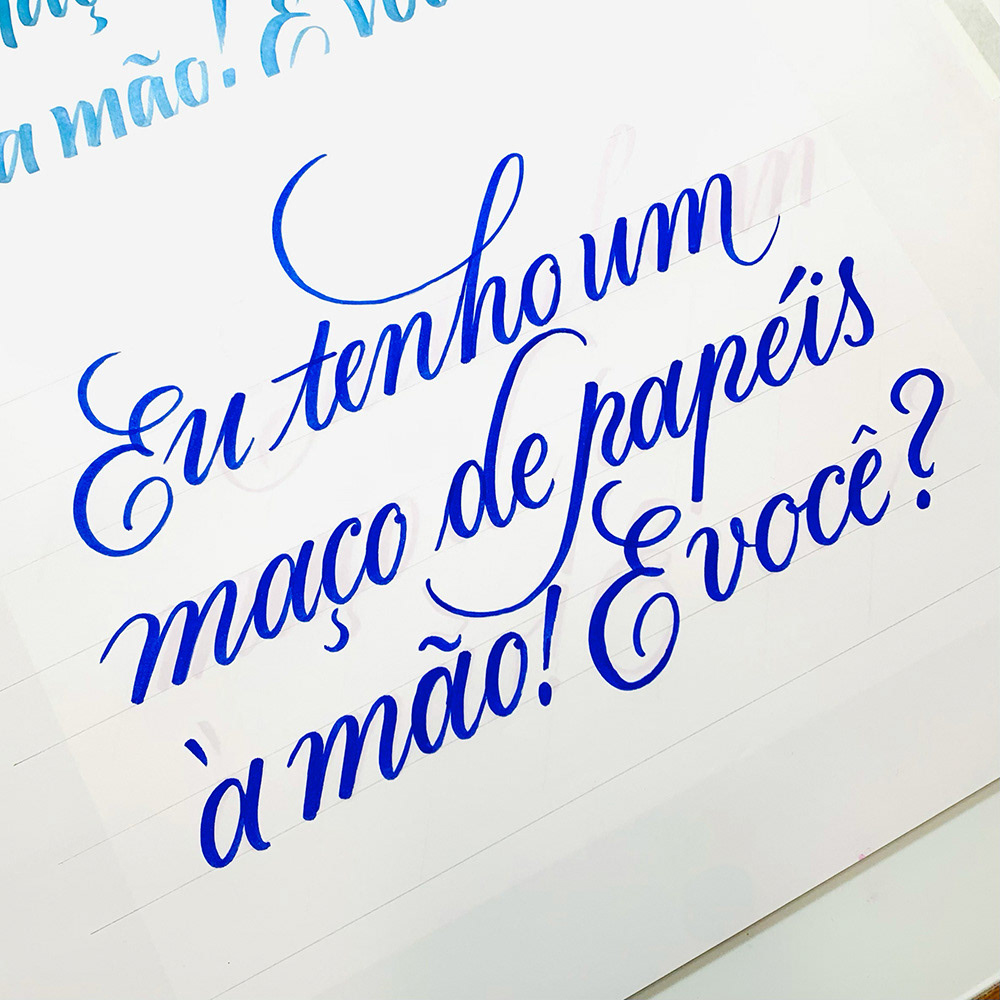 a mão! E vo
Eu tenho um
maço de papéis
à mão! E você?